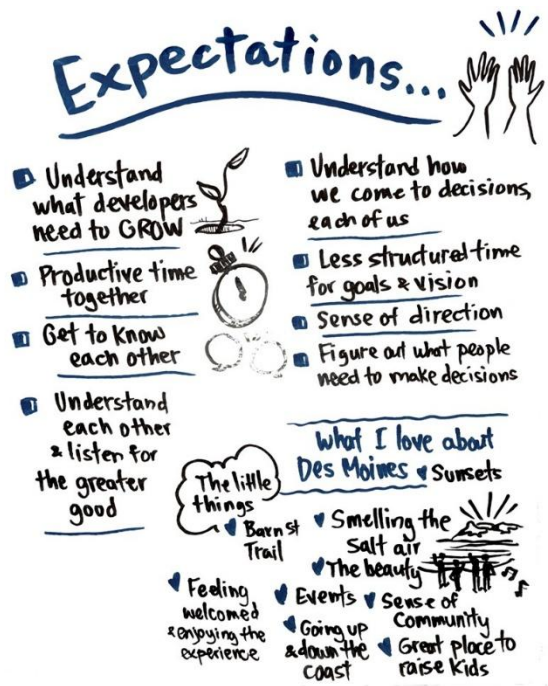 Expectations...
Understand
what developers
need to GROW
Productive time
together
Get to Know
each other
Understand
each other
& listen for
the greater
good
Understand how
we come to decisions,
each of us
Less structured time
for goals & vision
Sense of direction
Figure out what people
need to make decisions
What I love about
Des Moines
Sunsets
The little
things
Barnst
Trail
Smelling the
Salt air
The beauty
Feeling
welcomed
& enjoying the
experience
Events
Going up
& down the
coast
Sense of
Community
Great place to
raise Kids